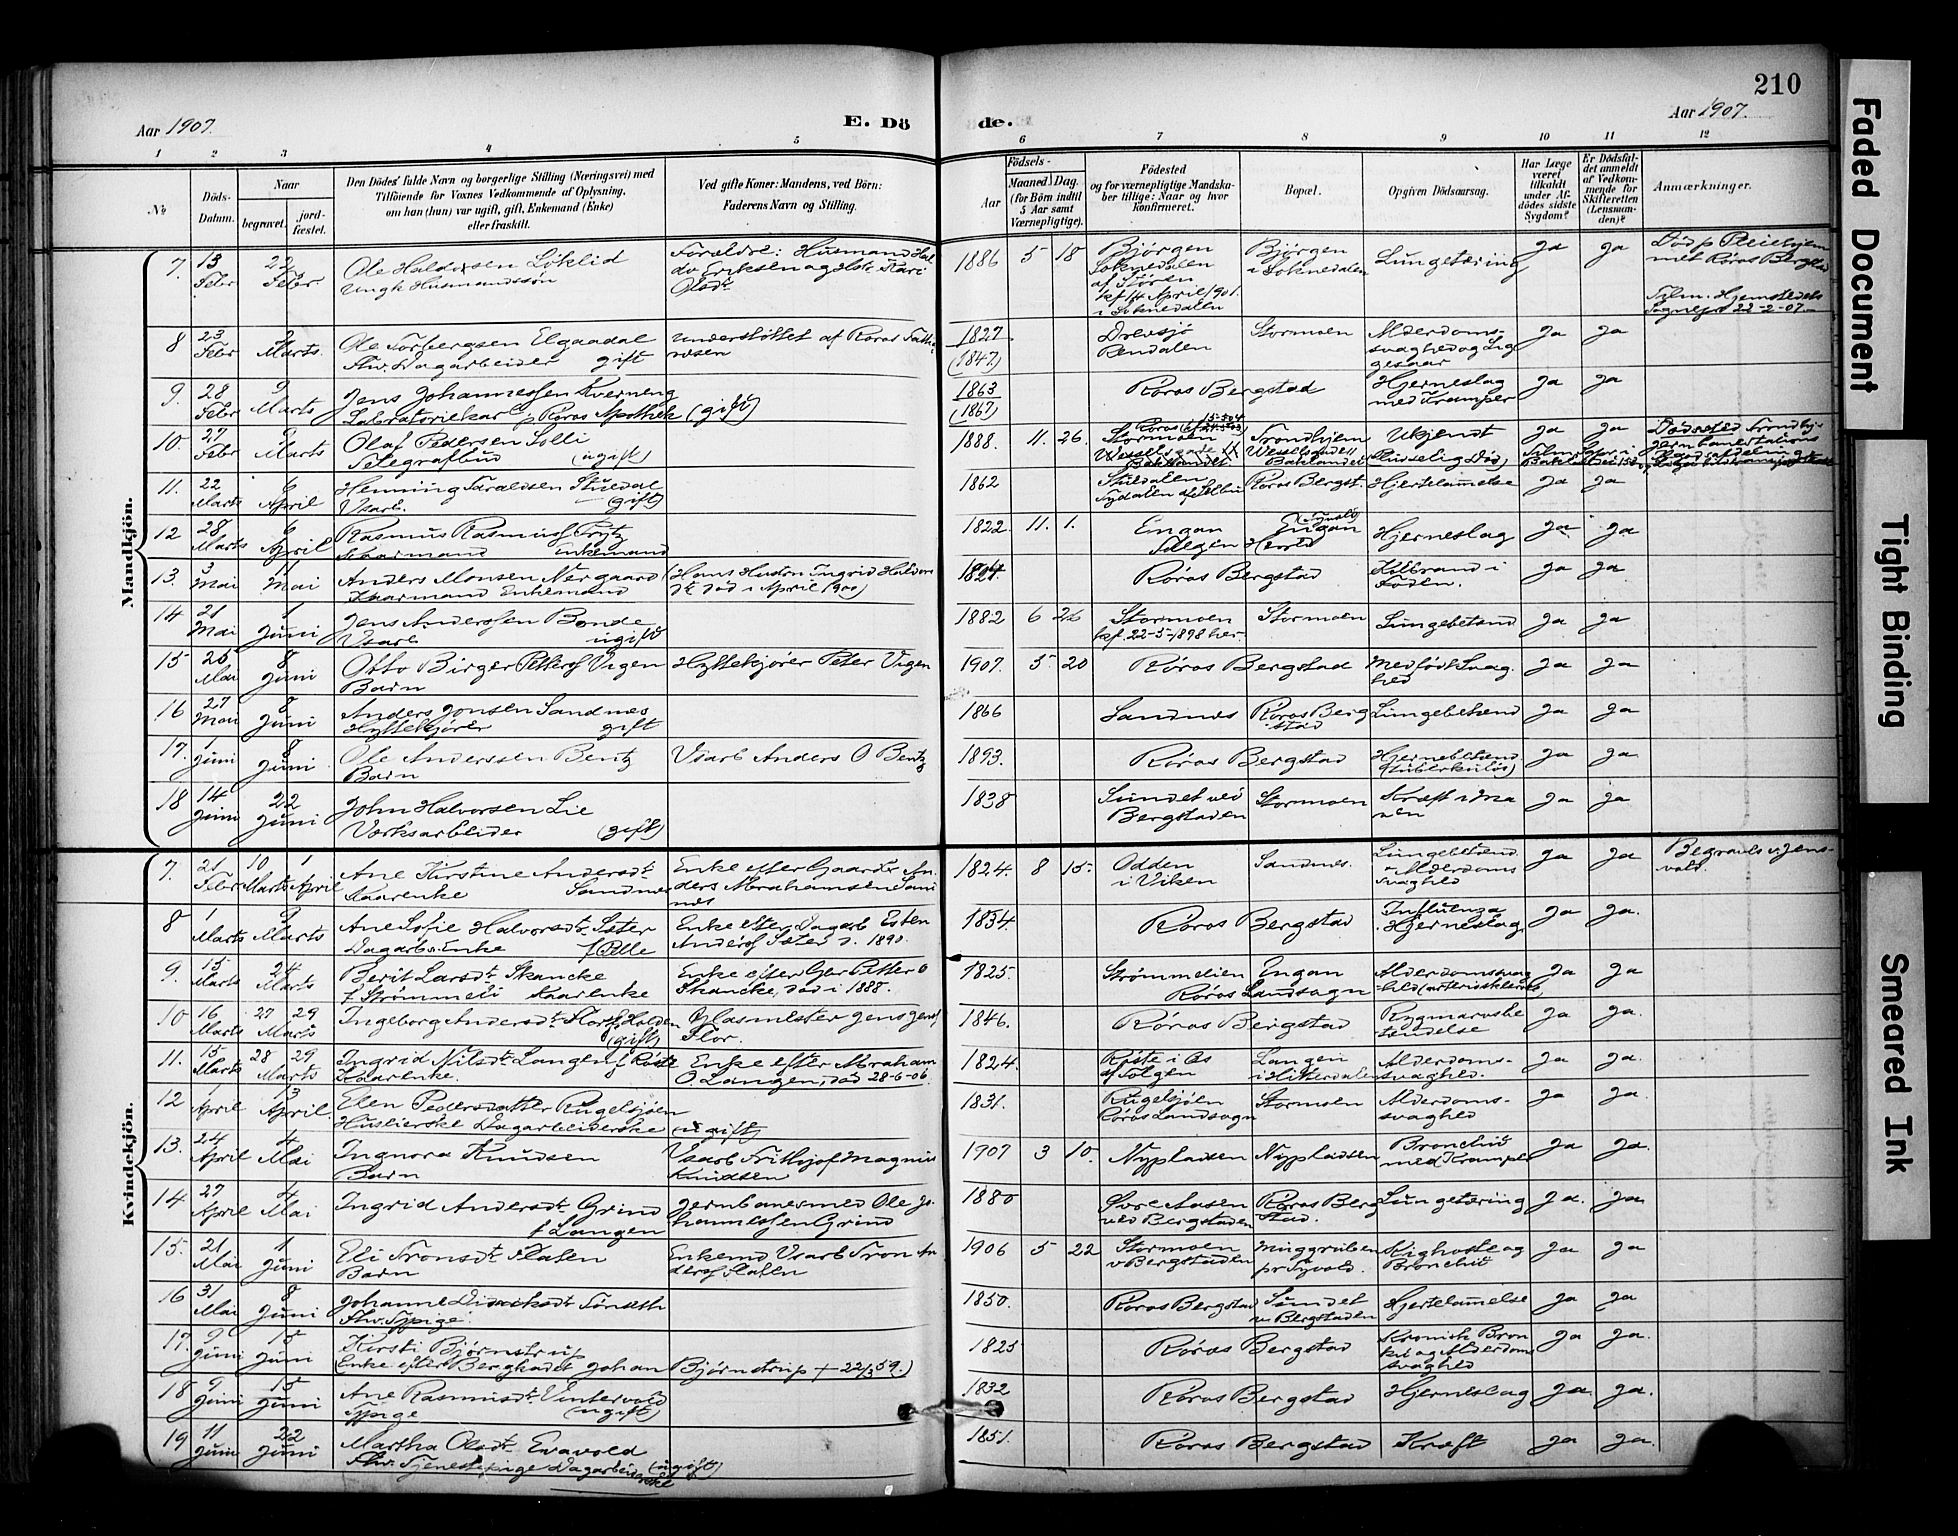 210
Aar 1907.
E. Dö
de.
Aar 1907.
1 2 3 4 5 6 7 8 9 10 11 12
No
Döds-
Datum.
Naar
begravet.
jord-
fæstet.
Den Dödes' fulde Navn og borgerlige Stilling (Næringsvei) med
Tilföiende for Voxnes Vedkommende af Oplysning,
om han (hun) var ugift, gift, Enkemand (Enke)
eller fraskilt.
Ved gifte Koner: Mandens, ved Börn:
Faderens Navn og Stilling.
Aar
Födsels-
Maaned. Dag.
(for Börn indtil
5 Aar samt
Værnepligtige).
Födested
og for værnepligtige Mandska-
ber tillige: Naar og hvor
konfirmeret.
Bopæl.
Opgiven Dödsaarsag.
Har Læge
været
tilkaldt
under Af-
dödes sidste
Sygdom?
Er Dödsfal-
det anmeldt
af Vedkom-
mende for
Skifteretten
(Lensman-
den)?
Anmærkninger.
Mandkjön.
7. 13 Febr 22 Febr. Ole Haldorsen Løklid
Ungk Husmandssøn
Forældre: Husmand Hal-
dor Eriksen og Hstr Kari
Olsdr
1886 5 18 Bjørgen
Soknedalen
af Støren
kf 14 April 1901.
i Soknedalen
Bjørgen
i Soknedalen
Lungetæring Ja Ja
Død p Pleiehjem
met Røros Bergstad
Tilm. Hjemstedets
Sognepr 22-2-07.
8 23 Febr 2 Marts. Ole Torbergsen Elgaadal
Fhv. Dagarbeider gift
understøttet af Røros Fatt-
væsen
1827 (1847) Drevsjø
Rendalen
Stormoen
Alderdoms-
svaghed og Lig
gesaar
Ja Ja
9. 28 Febr 9 Marts Jens Johannessen Kverneng
Labratoriekar p Røros Apothek (gift)
1863 (1867) Røros Bergstad Hjerneslag
med Kramper Ja Ja
10. 27 Febr 9 Marts Olaf Pedersen Solli
Telegrafbud (ugift)
1888. 11. 26. Stormoen Trondhjem Ukjendt Ja Ja
Wesselsgade 11
Baklandet
(Pludselig Død)
Dødssted Trondhj.
Jernbanestations
11. 22 Marts 6 April Henning Taraldsen Stuedal
Vsarb. (gift)
1862 Stuedalen
Tydalen af Selbu
Røros Bergst. Hjertelammelse Ja Ja
12 28 Marts 6 April Rasmus Rasmusf Trytz
Kaarmand Enkemand
1822. 11. 1. Engan Engan Hjerneslag Ja Ja
13. 3 Mai 11 Mai Anders Monsen Nørgaard
Kaarmand Enkemand
(Hans Hustru Ingrid Halvors
dtr død i April 1900)
1824. Røros Bergstad Kolbrand i
Foden. Ja Ja
14 21 Mai 1 Juni Jens Anderssen Bonde
Vsarb ugift
1882 6 26 Stormoen
kf. 22-5-1898 her
Stormoen Lungebetænd Ja Ja
15 25 Mai 8 Juni Otto Birger Pettersf Vigen
Barn
Hyttekjører Peter Vigen
1907. 5 20 Røros Bergstad Medfødt Svag
hed Ja Ja
16 27 Mai 8 Juni Anders Jonsen Sandnes
Hyttekjører gift
1866 Sandnes Røros Berg
stad Lungebetænd Ja Ja
17. 1 Juni 8 Juni Ole Anderssen Bentz
Barn
Vsarb Anders O Bentz
1893. Røros Bergstad Hjernebetænd
(tuberkuløs) Ja Ja
18 14 Juni 22 Juni John Halvorsen Lie
Verksarbeider (gift)
1838 Sundet ved
Bergstaden
Stormoen Kræft i Ma
ven Ja Ja
Kvindekjön.
7. 21 Febr 10 Marts 1 April Ane Kirstine Andersdr
Kaarenke Sandnes
Enke efter Gaardbr An-
ders Abrahamsen Sand
nes
1824. 8 15. Odden
i Viken
Sandnes. Lungebetænd
Alderdoms
svaghed Ja Ja Begravet v Jens-
vold.
8 1 Marts 9 Marts Ane Sofie Halvorsdr Ister
Dagarbs. Enke
Enke efter Dagarb Esten
Andersf Ister d. 1890.
1834. Røros Bergstad Influenza
Hjerneslag Ja Ja.
9. 15 Marts 24 Marts Berit Larsdr Skancke
f Strømmeli Kaarenke
Enke efter Gbr Petter O
Skancke, død i 1888.
1825. Strømmelien Engan
Røros Landsogn
Alderdomsvag
hed (arteriosklerose) Ja Ja
10 16 Marts 27 Marts 29 Ingeborg Andersdr Flor
(gift)
Glasmester Jens Jensf
Flor.
1846. Røros Bergstad Rygmarvsbe
tændelse Ja Ja.
11. 15 Marts 28 29 Marts Ingrid Nilsdr Langen f Røste
Kaarenke.
Enke efter Abraham
O. Langen, død 28-6-06
1824. Røste i Os
af Tolgen
Langen
i Hitterdalen
Alderdoms-
svaghed. Ja Ja.
12 1 April 13 April. Elen Pedersdatter Rugelsjøen
Huslierske Dagarbeiderske (ugift)
1831. Rugelsjøen
Røros Landsogn
Stormoen Alderdoms-
svaghed Ja Ja.
13. 24 April 4 Mai Ingnora Knudsen
Barn
Vsarb Frithjof Magnus
Knudsen
1907 3 10. Nypladsen Nypladsen Bronchit
med Kramper Ja Ja.
14 27 April 4 Mai Ingrid Andersdr Grind
f Langen
Jernbanesmed Ole Jo-
hannessen Grind
1880 Øvre Aasen
ved Bergstaden
Røros Berg
stad. Lungetæring Ja. Ja.
15. 21 Mai 1 Juni Eli Tronsdr Flaten
Barn
Enkemd Vsarb Tron An
dersf Flaten
1906 5 22 Stormoen
v Bergstaden
Muggruben
pr Tyvold.
Kighoste og
Bronchit Ja Ja
16 31 Mai 8 Juni Johanne Tørresth
Fhv. Tjpige.
1850. Røros Bergstad Sundet
v Bergstaden
Hjertelammelse Ja Ja
17. 9 Juni 15 Juni Kirsti Bjørnstrup
(Enke efter Bergkadet Johan Bjørnstrup + 22/3 59.)
1825 Røros Bergstad Kronisk Bron
kit og Alderdoms
svaghed Ja Ja.
18 9 Juni 15 Juni Ane Rasmusdr Vintervold
Tjpige (ugift)
1832 Røros Bergstad Hjerneslag Ja. Ja.
19 11 Juni 22 Juni Martha Olsdr Evavold
Fhv. Tjenestepige Dagarbeiderske (ugift)
1851. Røros Bergstad Kræft Ja Ja.
Faded Document
Tight Binding
Smeared Ink